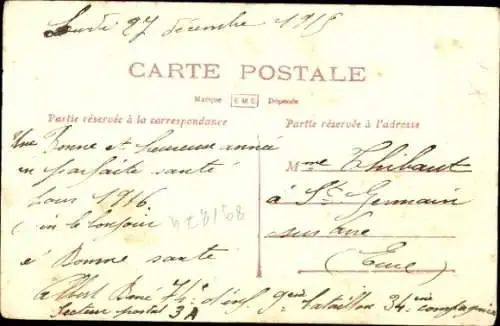 Lundi 27 décembre 1915
CARTE POSTALE
Marque E.M.E Déposée
Partie réservée à la correspondance
Partie réservée à l'adresse
Une Bonne et heureuse année
en parfaite santé
pour 1916.
un le bonjour
é Bonne santé
Mme Thibaut
à St Germain
sur Avre
(Eure)
Albert René 74e d'inf 9em bataillon 34em compagnie
Secteur postal 3A